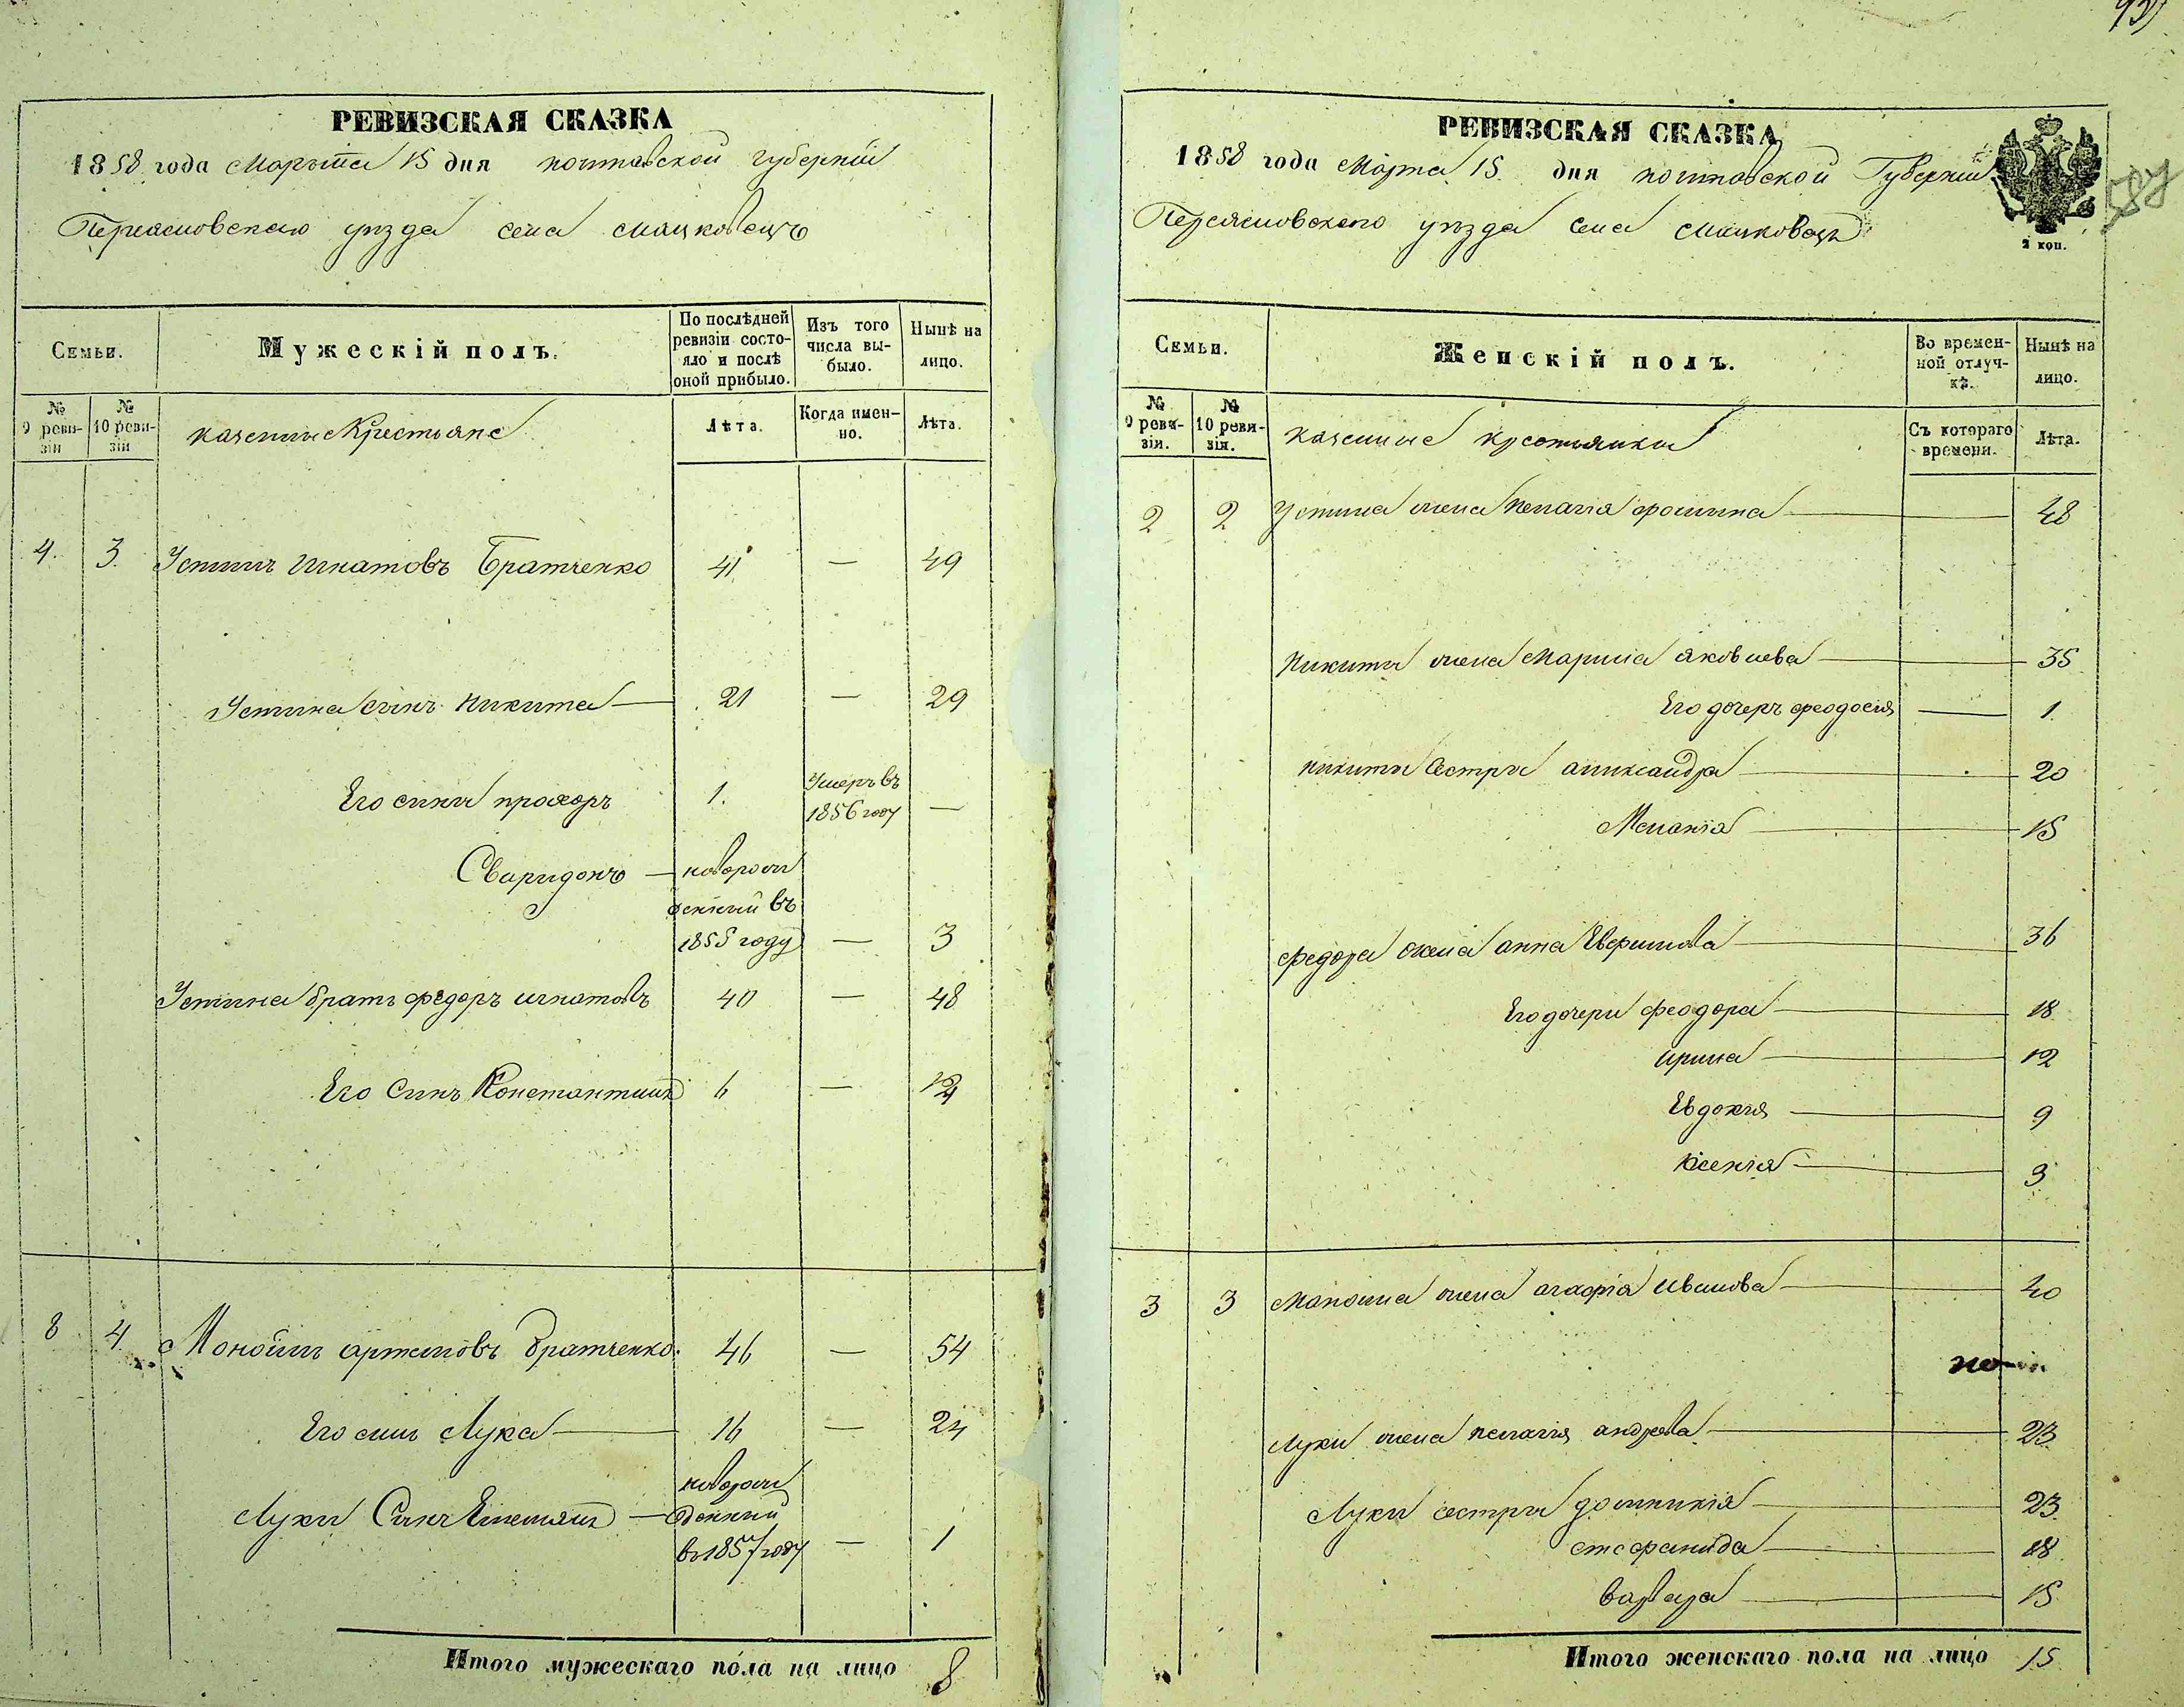 РЕВИЗСКАЯ СКАЗКА
1858 года Марта 15 дня полтавской губерніи
Переясловского уезда села Мацковецъ
Семьи.
Мужескій полъ.
По послѣдней ревизіи состояло и послѣ оной прибыло.
Изъ того числа выбыло.
Нынѣ на лицо.
№ 9 ревизіи
№ 10 ревизіи
казенние Крестьяне
Лѣта.
Когда именно.
Лѣта.
4. 3. Устинъ игнатовъ Братченко 41 — 49
Устина сынъ никита — 21 — 29
Его сины прохоръ 1. Умеръ въ 1856 году —
Свиридонъ — новорожденний въ 1855 году — 3
Устина братъ федоръ игнатовъ 40 — 48
Его Синъ Константинъ 6 — 14
8 4. Моноилъ артемовъ братченко. 46 — 54
Его синъ Лука — 16 — 24
Луки Синъ Емельянъ — новорожденний въ 1857 году — 1
Итого мужескаго пола на лицо 8
РЕВИЗСКАЯ СКАЗКА
1858 года Марта 15 дня полтавской Губерніи
2 коп.
Переясловского уезда села Мацковецъ
Семьи.
Женскій полъ.
Во временной отлучкѣ.
Нынѣ на лицо.
№ 9 ревизіи.
№ 10 ревизіи.
казенные крестьянки
Съ котораго времени.
Лѣта.
2 2 Устина жена пелагія фомина — 48
Никиты жена Марина яковлева — 35
Его дочеръ феодосия — 1.
никиты Сестры александра — 20
Меланія — 15
федора жена анна Евфимова — 36
Его дочери феодора — 18
ирина — 12
Евдокия — 9
Ксенія — 3
3 3 Маноила жена агафія иванова — 40
Луки жена пелагія андреева — 23
Луки сестры домникія — 23.
стефанида — 18.
варвара — 15
Итого женскаго пола на лицо 15.